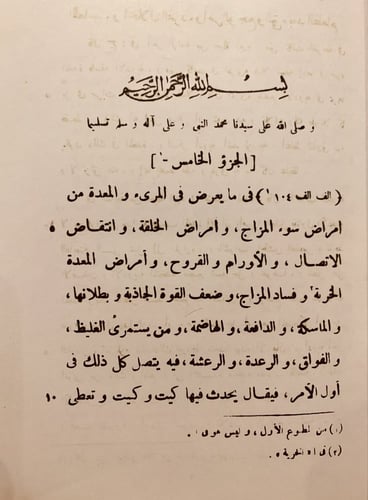 بسم الله الرحمن الرحيم
و صلى الله على سيدنا محمد النبى و على آله و سلم تسليما
[الجزؤ الخامس -١]
(الف الف ١٠٤) فى ما يعرض فى المرىء و المعدة من
امراض سوء المزاج، و امراض الخلقة، و انتقاض ٥
الاتصال، و الأورام و القروح، و أمراض المعدة
الخربة٢ و فساد المزاج، و ضعف القوة الجاذبة و بطلانها،
و الماسكة، و الدافعة، و الهاضمة، و من يستمرئ الغليظ،
و الفواق، و الرعدة، و الرعشة، فيه يتصل كل ذلك فى
أول الأمر، فيقال يحدث فيها كيت و كيت و تعطى ١٠
(١) من المطبوع الأول، و ليس هو فى ا.
(٢) فى ا